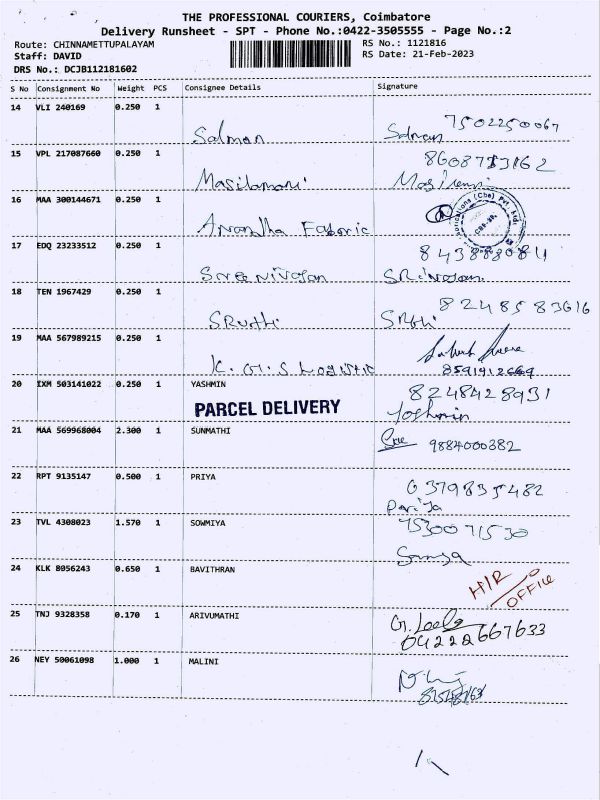 THE PROFESSIONAL COURIERS, Coimbatore
Delivery Runsheet - SPT - Phone No.:0422-3505555 - Page No.:2
Route: CHINNAMETTUPALAYAM RS No.: 1121816
Staff: DAVID RS Date: 21-Feb-2023
DRS No.: DCJB112181602
S No Consignment No Weight PCS Consignee Details Signature
14 VLI 240169 0.250 1
Salman Salman 7502250067
15 VPL 217087660 0.250 1
Masilamani
16 MAA 300144671 0.250 1
Anandha Fabric
17 EDQ 23233512 0.250 1
Sreenivasan Srinivasan
18 TEN 1967429 0.250 1 8248583616
Sruthi
19 MAA 567989215 0.250 1
K.G.S Logistic 8591912669
20 IXM 503141022 0.250 1 YASHMIN 8248428931
PARCEL DELIVERY Yoshmin
21 MAA 569968004 2.300 1 SUNMATHI 9884000382
22 RPT 9135147 0.500 1 PRIYA 6379835482
23 TVL 4308023 1.570 1 SOWMIYA 7530071530
24 KLK 8056243 0.650 1 BAVITHRAN H/R
OFFICE
25 TNJ 9328358 0.170 1 ARIVUMATHI G. Leela
04222667633
26 NEY 50061098 1.000 1 MALINI